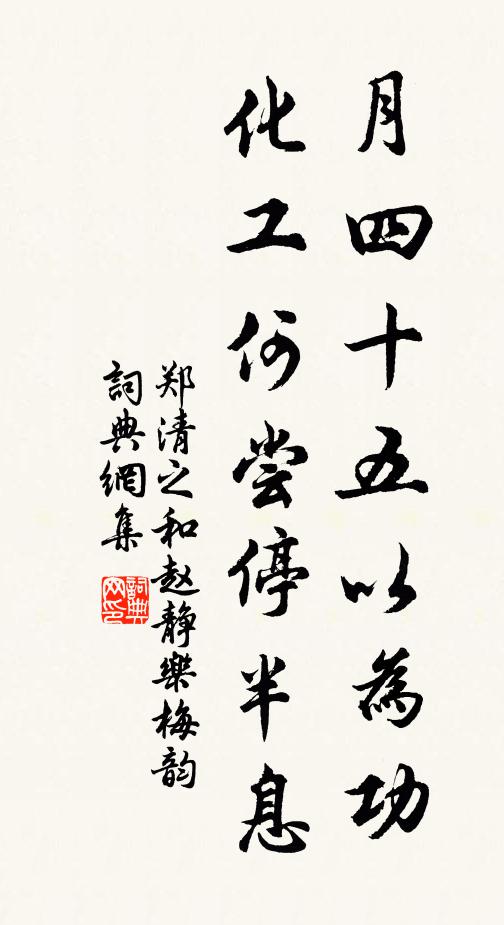 月四十五以為功
化工何尝停半息
郑清之和赵静樂梅韵
詞典網集
詞典網印